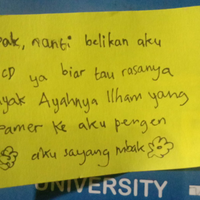 bak, nanti belikan aku
CD ya biar tau rasanya
yak Ayahnya Ilham yang
pamer ke aku pengen
aku sayang mbak
UNIVERSITY